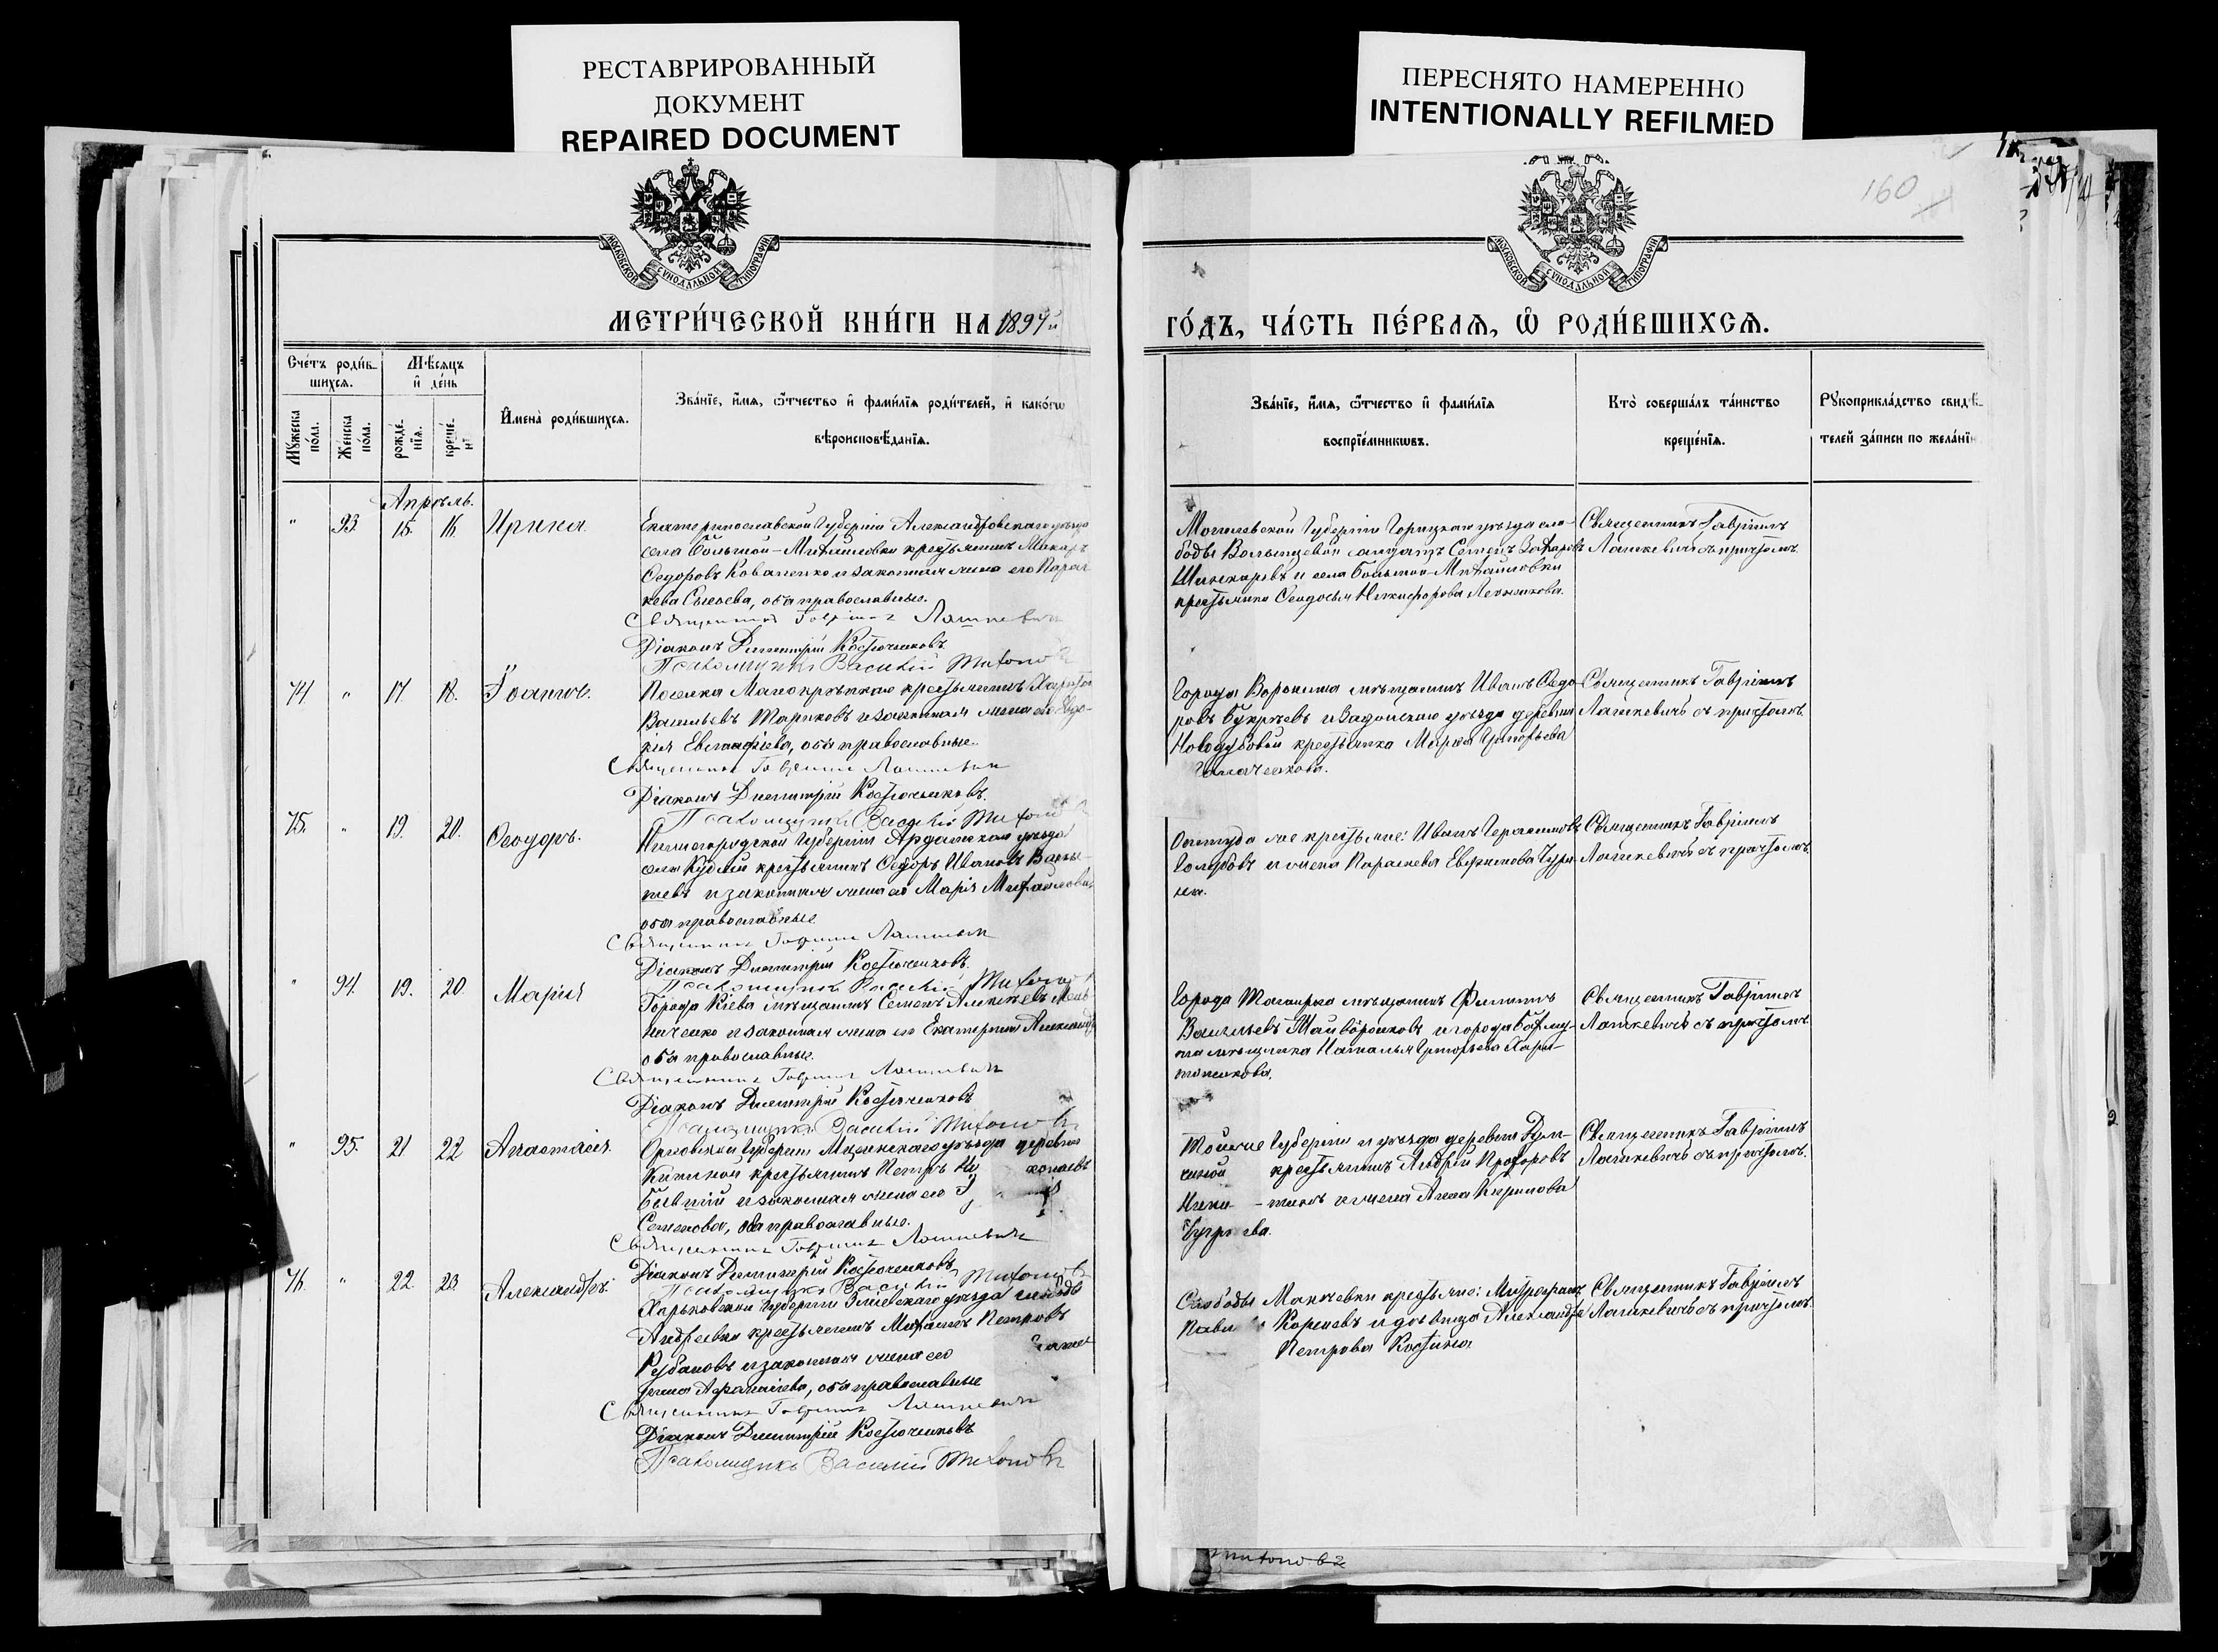 РЕСТАВРИРОВАННЫЙ
ДОКУМЕНТ
REPAIRED DOCUMENT
ПЕРЕСНЯТО НАМЕРЕННО
INTENTIONALLY REFILMED
160
МОСКОВСКОЙ СУНОДАЛЬНОЙ ТИПОГРАФІИ
МОСКОВСКОЙ СУНОДАЛЬНОЙ ТИПОГРАФІИ
МЕТРИ́ЧЕСКОЙ КНИ́ГИ НА 1894й
ГО́ДЪ, ЧА́СТЬ ПЕ́РВАѦ, Ѡ҆ РОДИ́ВШИХСѦ.
Сче́тъ роди́в-
шихсѧ.
Мѣ́сѧцъ
и҆ де́нь
Мꙋ́жеска
по́ла.
Же́нска
по́ла.
рожде́-
нїѧ.
креще́-
Имена̀ роди́вшихсѧ.
Зва́нїе, и҆́мѧ, ѻ҆́тчество и҆ фами́лїѧ роди́телей, и҆ како́гѡ
вѣроисповѣ́данїѧ.
Зва́нїе, и҆́мѧ, ѻ҆́тчество и҆ фами́лїѧ
воспрїе́мникѡвъ.
Кто̀ соверша́лъ та́инство
креще́нїѧ.
Рꙋкоприкла́дство свидѣ́-
телей за́писи по жела́нїю
Апрѣль.
" 93. 15. 16. Ирина.
Екатеринославской Губерніи Александровскаго уѣзда
села Большой-Михайловки крестьянинъ Макаръ
Ѳедоровъ Коваленко и законная жена его Парас
кева Сысоева, оба православные.
Священникъ Гавріилъ Лашкевичъ
Діаконъ Димитрій Костюченковъ
Псаломщикъ Василій Тихоновъ
Могилевской Губерніи Горицкаго уѣзда сло-
боды Волынцевой солдатъ Семенъ Захаровъ
Шинкаревъ и села Большой-Михайловки
крестьянка Ѳеодосья Никифорова
Священникъ Гавріилъ
Лашкевичъ съ причтомъ.
74. " 17. 18. Іоаннъ.
Поселка крестьянинъ Харитонъ
Васильевъ Тариковъ и законная жена его Евдо-
кія оба православные.
Священникъ Гавріилъ Лашкевичъ
Діаконъ Димитрій Костюченковъ.
Псаломщикъ Василій Тихоновъ
Города Воронежа мѣщанинъ Иванъ Ѳедо-
ровъ и Задонскаго уѣзда деревни
крестьянка Марѳа Григорьева
Священникъ Гавріилъ
Лашкевичъ съ причтомъ.
75. " 19. 20. Ѳеодоръ.
Нижегородской Губерніи Ардатскаго уѣзда
села крестьянинъ Ѳедоръ Ивановъ
и законная жена его Марія Михайлова,
оба православные.
Священникъ Гавріилъ Лашкевичъ
Діаконъ Димитрій Костюченковъ.
Псаломщикъ Василій Тихоновъ
Оттуда же крестьяне: Иванъ Герасимовъ
Голубовъ и жена Параскева
Священникъ Гавріилъ
Лашкевичъ съ причтомъ.
" 94. 19. 20. Марія
Города Кіева мѣщанинъ Семенъ Алексѣевъ
и законная жена его Екатерина
оба православные.
Священникъ Гавріилъ Лашкевичъ
Діаконъ Димитрій Костюченковъ
Псаломщикъ Василій Тихоновъ
Города Таганрога мѣщанинъ Филиппъ
Васильевъ Жаворонковъ и города Бахму-
та мѣщанка Наталья Григорьева Хари-
тоненкова.
Священникъ Гавріилъ
Лашкевичъ съ причтомъ.
" 95. 21 22 Анастасія.
Орловской Губерніи Мценскаго уѣзда деревни
крестьянинъ Петръ
и законная жена его
Семенова, оба православные.
Священникъ Гавріилъ Лашкевичъ
Діаконъ Димитрій Костюченковъ
Псаломщикъ Василій Тихоновъ
Той же Губерніи и уѣзда деревни
крестьянинъ Андрей Прохоровъ
и жена Анна Кирилова
Священникъ Гавріилъ
Лашкевичъ съ причтомъ.
76. " 22. 23. Александръ.
Харьковской Губерніи Зміевскаго уѣзда слободы
Андреевки крестьянинъ Михаилъ Петровъ
Рубановъ и законная жена его
Аѳанасіева, оба православные
Священникъ Гавріилъ Лашкевичъ
Діаконъ Димитрій Костюченковъ
Псаломщикъ Василій Тихоновъ
Слободы Макѣевки крестьяне: Митрофанъ
Кореневъ и дѣвица Александра
Петрова Костина
Священникъ Гавріилъ
Лашкевичъ съ причтомъ.
Тихоновъ